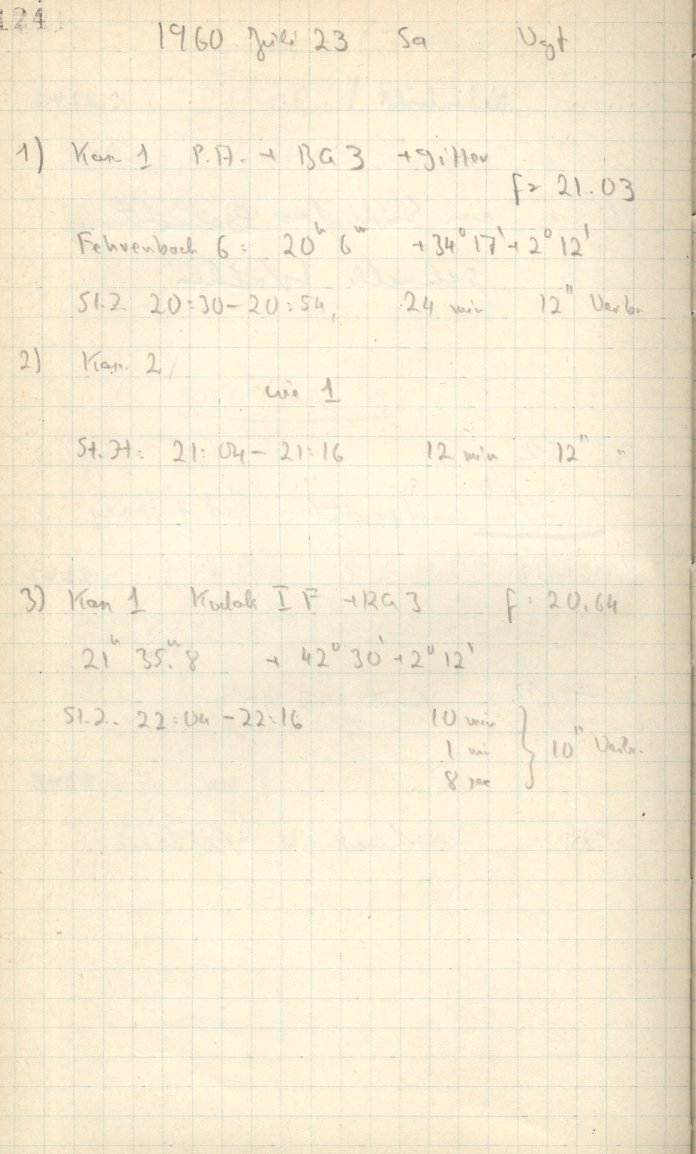 124
1960 Juli 23 Sa Vgt
1) Kam 1 P.A. + BG 3 + gitter
f= 21.03
Fehrenbach 6: 20h 6m +34° 17' + 2° 12'
St.Z. 20:30 – 20:54, 24 min 12" Verbr.
2) Kam. 2
wie 1
St.Z. 21:04 – 21:16 12 min 12" "
3) Kam 1 Kodak I F + RG 3 f: 20.64
21h 35.m8 + 42° 30' + 2° 12'
St.Z. 22:04 – 22:16 10 min
1 mi } 10" Verbr.
8 sec